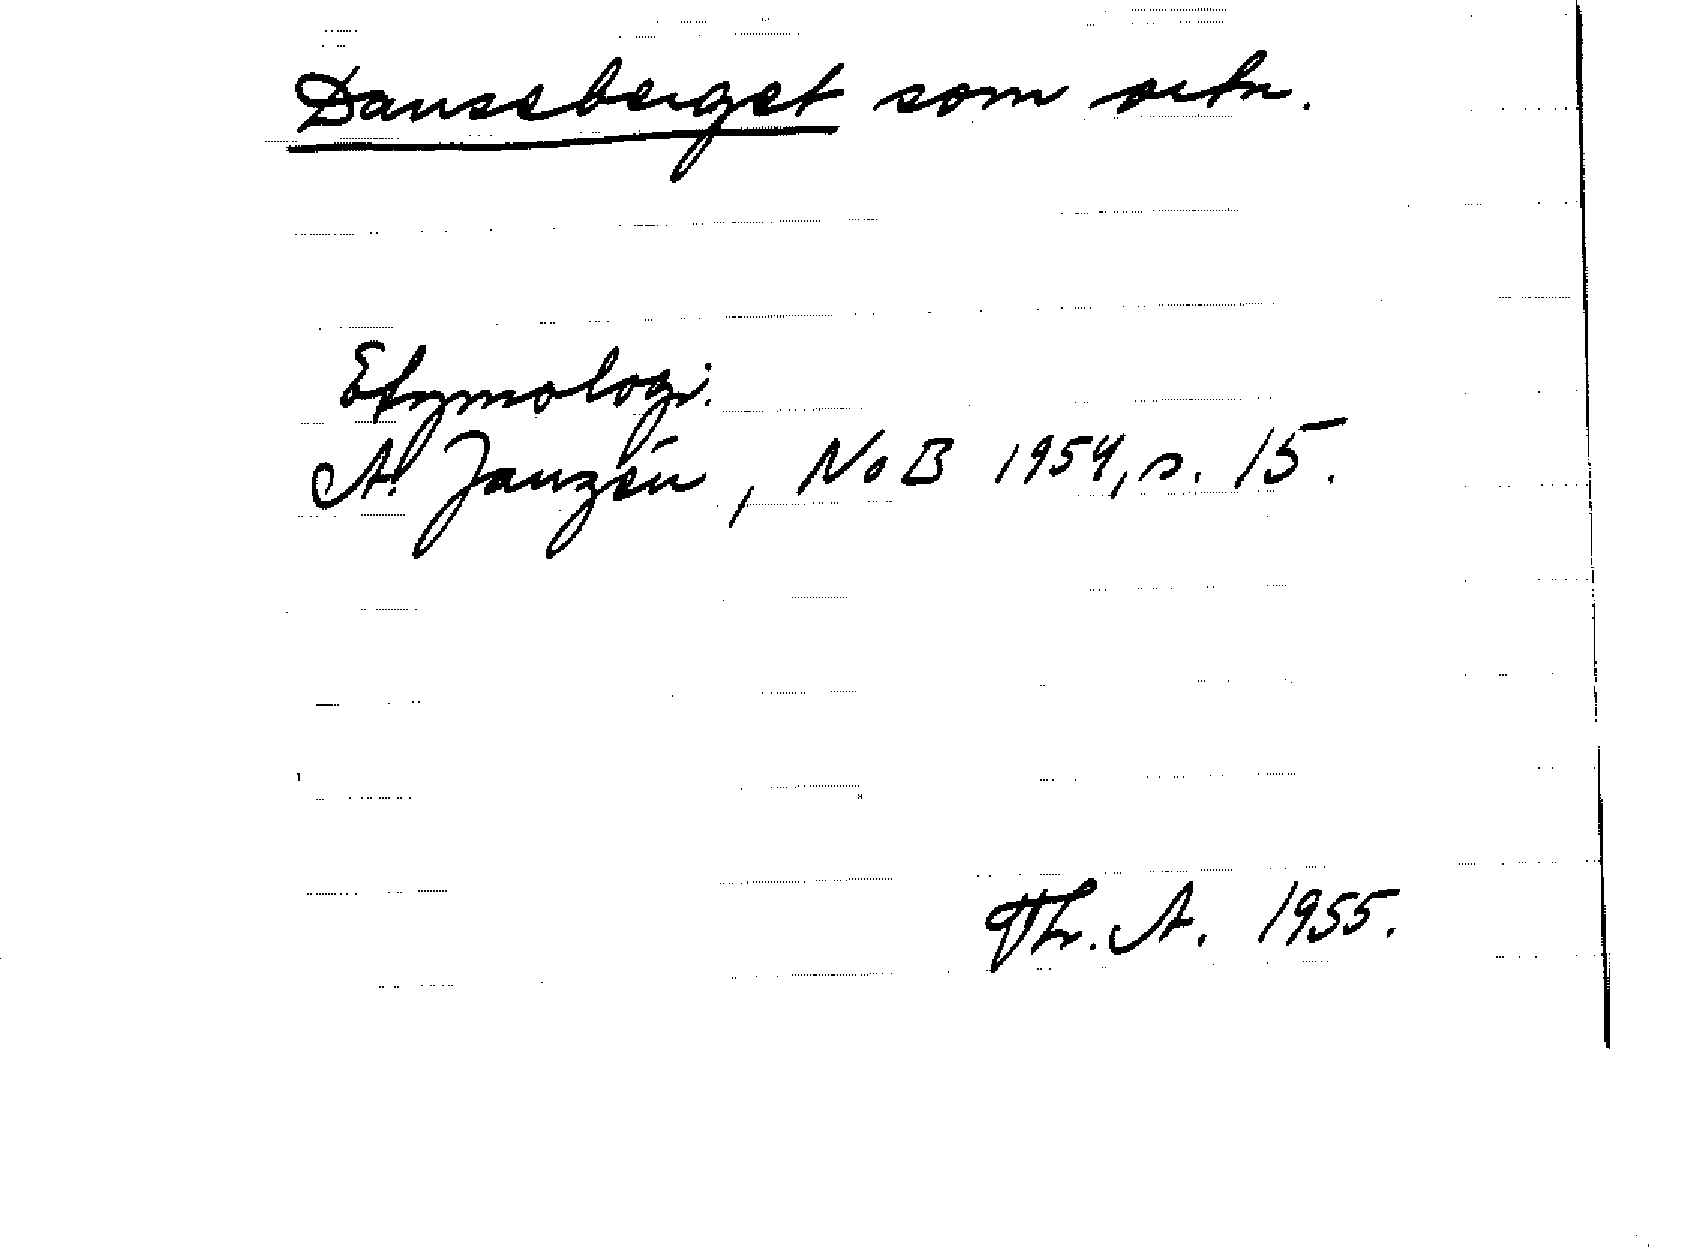 Danseberget som ortn.
Etymologi.
A. Janzén, NoB 1954, s. 15.
Th. A. 1955.